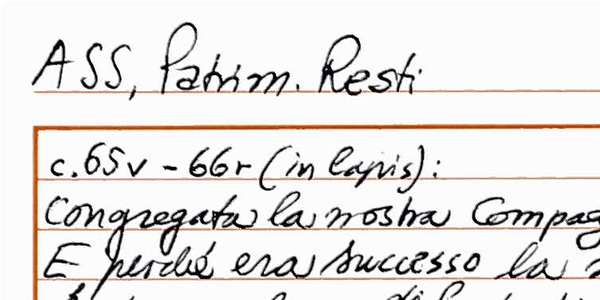 ASS, Patrim. Resti
c. 65v - 66r (in lapis):
Congregata la nostra Compag
E perché era successo la